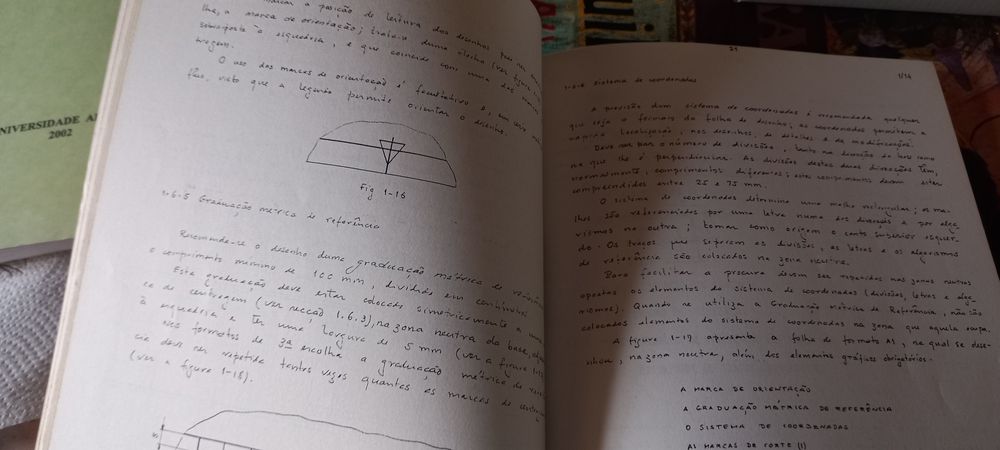 NIVERSIDADE A
2002
a posição de leitura dos desenhos
a marca de orientação; trata-se duma
sobreposta à esquadria, e que coincide com uma das marcas
tragem.
O uso das marcas de orientação é facultativo e, em
visto que a legenda permite orientar o desenho.
Fig 1-16
1.6.5 Graduação métrica de referência
Recomenda-se o desenho duma graduação métrica de
o comprimento mínimo de 100 mm, dividida em centímetros
Esta graduação deve estar colocada simetricamente a uma
ca de centragem (ver secção 1.6.3), na zona neutra da base,
à esquadria e ter uma largura de 5 mm (ver a figura 1-17
Nos formatos de 3ª escolha a graduação métrica de
cia deve ser repetida tantas vezes quantas as marcas de
(ver a figura 1-18).
21
1/14
1.6.6 Sistema de coordenadas
A previsão dum sistema de coordenadas é recomendada qualquer
que seja o formato da folha de desenho; as coordenadas permitem a
localização, nos desenhos, de detalhes e de modificações.
Deve ser par o número de divisões, tanto na direcção da base como
na que lhe é perpendicular. As divisões destas duas direcções têm,
normalmente, comprimentos diferentes; estes comprimentos devem estar
compreendidos entre 25 e 75 mm.
O sistema de coordenadas determina uma malha rectangular; as ma-
lhas são referenciadas por uma letra numa das direcções e por alga-
rismos na outra; tomar como origem o canto superior esquer-
do. Os traços que separam as divisões, as letras e os algarismos
de referência são colocados na zona neutra.
Para facilitar a procura devem ser repetidos nas zonas neutras
opostas os elementos do sistema de coordenadas (divisões, letras e alga-
rismos). Quando se utiliza a Graduação Métrica de Referência, não são
colocados elementos do sistema de coordenadas na zona que aquela ocupa.
A figura 1-17 apresenta a folha de formato A1, na qual se dese-
nhou, na zona neutra, além dos elementos gráficos obrigatórios:
A MARCA DE ORIENTAÇÃO
A GRADUAÇÃO MÉTRICA DE REFERÊNCIA
O SISTEMA DE COORDENADAS
AS MARCAS DE CORTE (1)